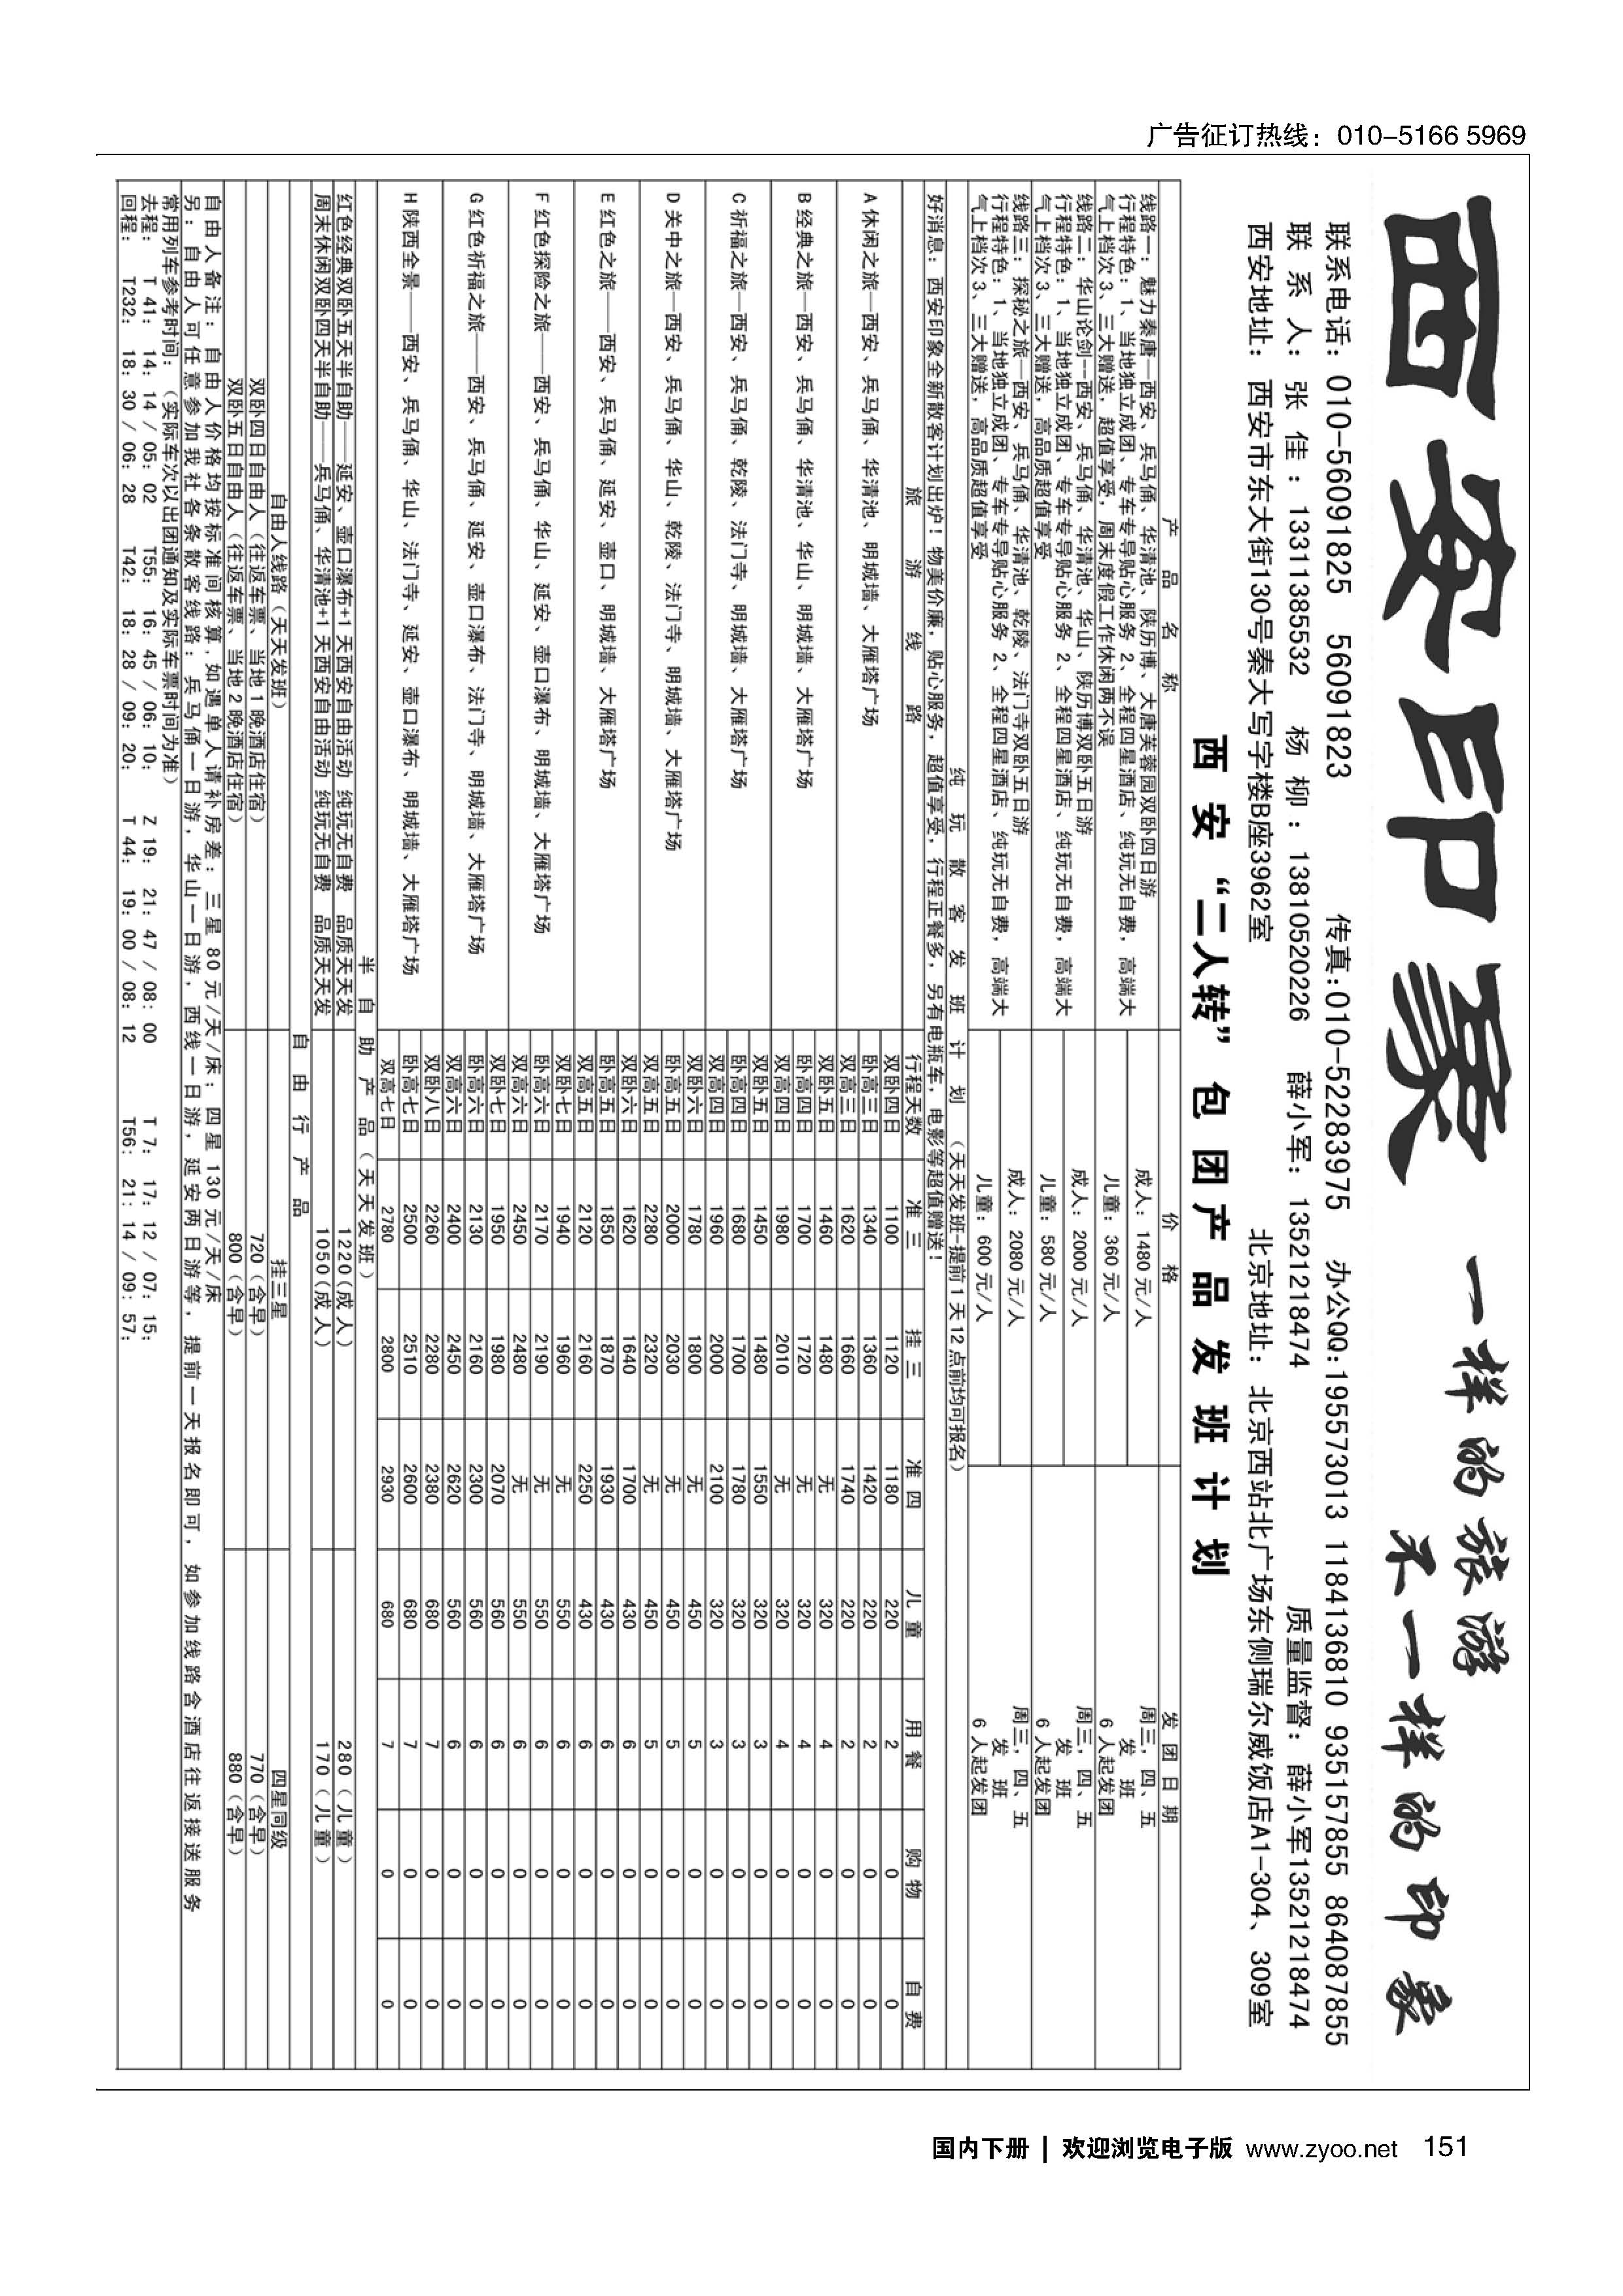 广告征订热线：010-5166 5969
西安印象
一样的旅游
不一样的印象
联系电话：010-56091825 56091823 传真:010-52283975 办公QQ:195573013 1184136810 935157855 864087855
联 系 人： 张 佳：13311385532 杨 柳：13810520226 薛小军：13521218474 质量监督：薛小军13521218474
西安地址： 西安市东大街130号秦大写字楼B座3962室 北京地址： 北京西站北广场东侧瑞尔威饭店A1-304、309室
西 安 “二人转” 包 团 产 品 发 班 计 划
产 品 名 称 价 格 发 团 日 期
线路一：魅力秦唐—西安、兵马俑、华清池、陕历博、大唐芙蓉园双卧四日游
行程特色：1、当地独立成团、专车专导贴心服务 2、全程四星酒店、纯玩无自费，高端大
气上档次 3、三大赠送，超值享受，周末度假工作休闲两不误
成人：1480 元/人
儿童：360 元/人
周三，四、五
发 班
6 人起发团
线路二：华山论剑--西安、兵马俑、华清池、华山、陕历博双卧五日游
行程特色：1、当地独立成团、专车专导贴心服务 2、全程四星酒店、纯玩无自费，高端大
气上档次 3、三大赠送，高品质超值享受
成人：2000 元/人
儿童：580 元/人
周三，四、五
发 班
6 人起发团
线路三：探秘之旅—西安、兵马俑、华清池、乾陵、法门寺双卧五日游
行程特色：1、当地独立成团、专车专导贴心服务 2、全程四星酒店、纯玩无自费，高端大
气上档次 3、三大赠送，高品质超值享受
成人：2080 元/人
儿童：600 元/人
周三，四、五
发 班
6 人起发团
纯 玩 散 客 发 班 计 划 （天天发班-提前 1 天 12 点前均可报名）
好消息：西安印象全新散客计划出炉！物美价廉，贴心服务，超值享受，行程正餐多，另有电瓶车，电影等超值赠送！
旅 游 线 路 行程天数 准 三 挂 三 准 四 儿 童 用 餐 购 物 自 费
A 休闲之旅—西安、兵马俑、华清池、明城墙、大雁塔广场
双卧四日 1100 1120 1180 220 2 0 0
卧高三日 1340 1360 1420 220 2 0 0
双高三日 1620 1660 1740 220 2 0 0
B 经典之旅—西安、兵马俑、华清池、华山、明城墙、大雁塔广场
双卧五日 1460 1480 无 320 4 0 0
卧高四日 1700 1720 无 320 4 0 0
双高四日 1980 2010 无 320 4 0 0
C 祈福之旅—西安、兵马俑、乾陵、法门寺、明城墙、大雁塔广场
双卧五日 1450 1480 1550 320 3 0 0
卧高四日 1680 1700 1780 320 3 0 0
双高四日 1960 2000 2100 320 3 0 0
D 关中之旅—西安、兵马俑、华山、乾陵、法门寺、明城墙、大雁塔广场
双卧六日 1780 1800 无 450 5 0 0
卧高五日 2000 2030 无 450 5 0 0
双高五日 2280 2320 无 450 5 0 0
E 红色之旅——西安、兵马俑、延安、壶口、明城墙、大雁塔广场
双卧六日 1620 1640 1700 430 6 0 0
卧高五日 1850 1870 1930 430 6 0 0
双高五日 2120 2160 2250 430 6 0 0
F 红色探险之旅——西安、兵马俑、华山、延安、壶口瀑布、明城墙、大雁塔广场
双卧七日 1940 1960 无 550 6 0 0
卧高六日 2170 2190 无 550 6 0 0
双高六日 2450 2480 无 550 6 0 0
G 红色祈福之旅——西安、兵马俑、延安、壶口瀑布、法门寺、明城墙、大雁塔广场
双卧七日 1950 1980 2070 560 6 0 0
卧高六日 2130 2160 2300 560 6 0 0
双高六日 2400 2450 2620 560 6 0 0
H 陕西全景——西安、兵马俑、华山、法门寺、延安、壶口瀑布、明城墙、大雁塔广场
双卧八日 2260 2280 2380 680 7 0 0
卧高七日 2500 2510 2600 680 7 0 0
双高七日 2780 2800 2930 680 7 0 0
半 自 助 产 品（天天发班）
红色经典双卧五天半自助——延安、壶口瀑布+1 天西安自由活动 纯玩无自费 品质天天发 1220(成人) 280（儿童）
周末休闲双卧四天半自助——兵马俑、华清池+1 天西安自由活动 纯玩无自费 品质天天发 1050(成人) 170（儿童）
自 由 行 产 品
自由人线路（天天发班） 挂三星 四星同级
双卧四日自由人（往返车票、当地 1 晚酒店住宿） 720（含早） 770（含早）
双卧五日自由人（往返车票、当地 2 晚酒店住宿） 800（含早） 880（含早）
自由人备注：自由人价格均按标准间核算，如遇单人请补房差：三星 80 元/天/床；四星 130 元/天/床
另：自由人可任意参加我社各条散客线路：兵马俑一日游，华山一日游，西线一日游，延安两日游等，提前一天报名即可，如参加线路含酒店往返接送服务
常用列车参考时间：（实际车次以出团通知及实际车票时间为准）
去程： T 41： 14：14 / 05：02 T55： 16：45 / 06：10： Z 19： 21：47 / 08：00 T 7： 17：12 / 07：15：
回程： T232： 18：30 / 06：28 T42： 18：28 / 09：20： T 44： 19：00 / 08：12 T56： 21：14 / 09：57：
国内下册 | 欢迎浏览电子版 www.zyoo.net 151